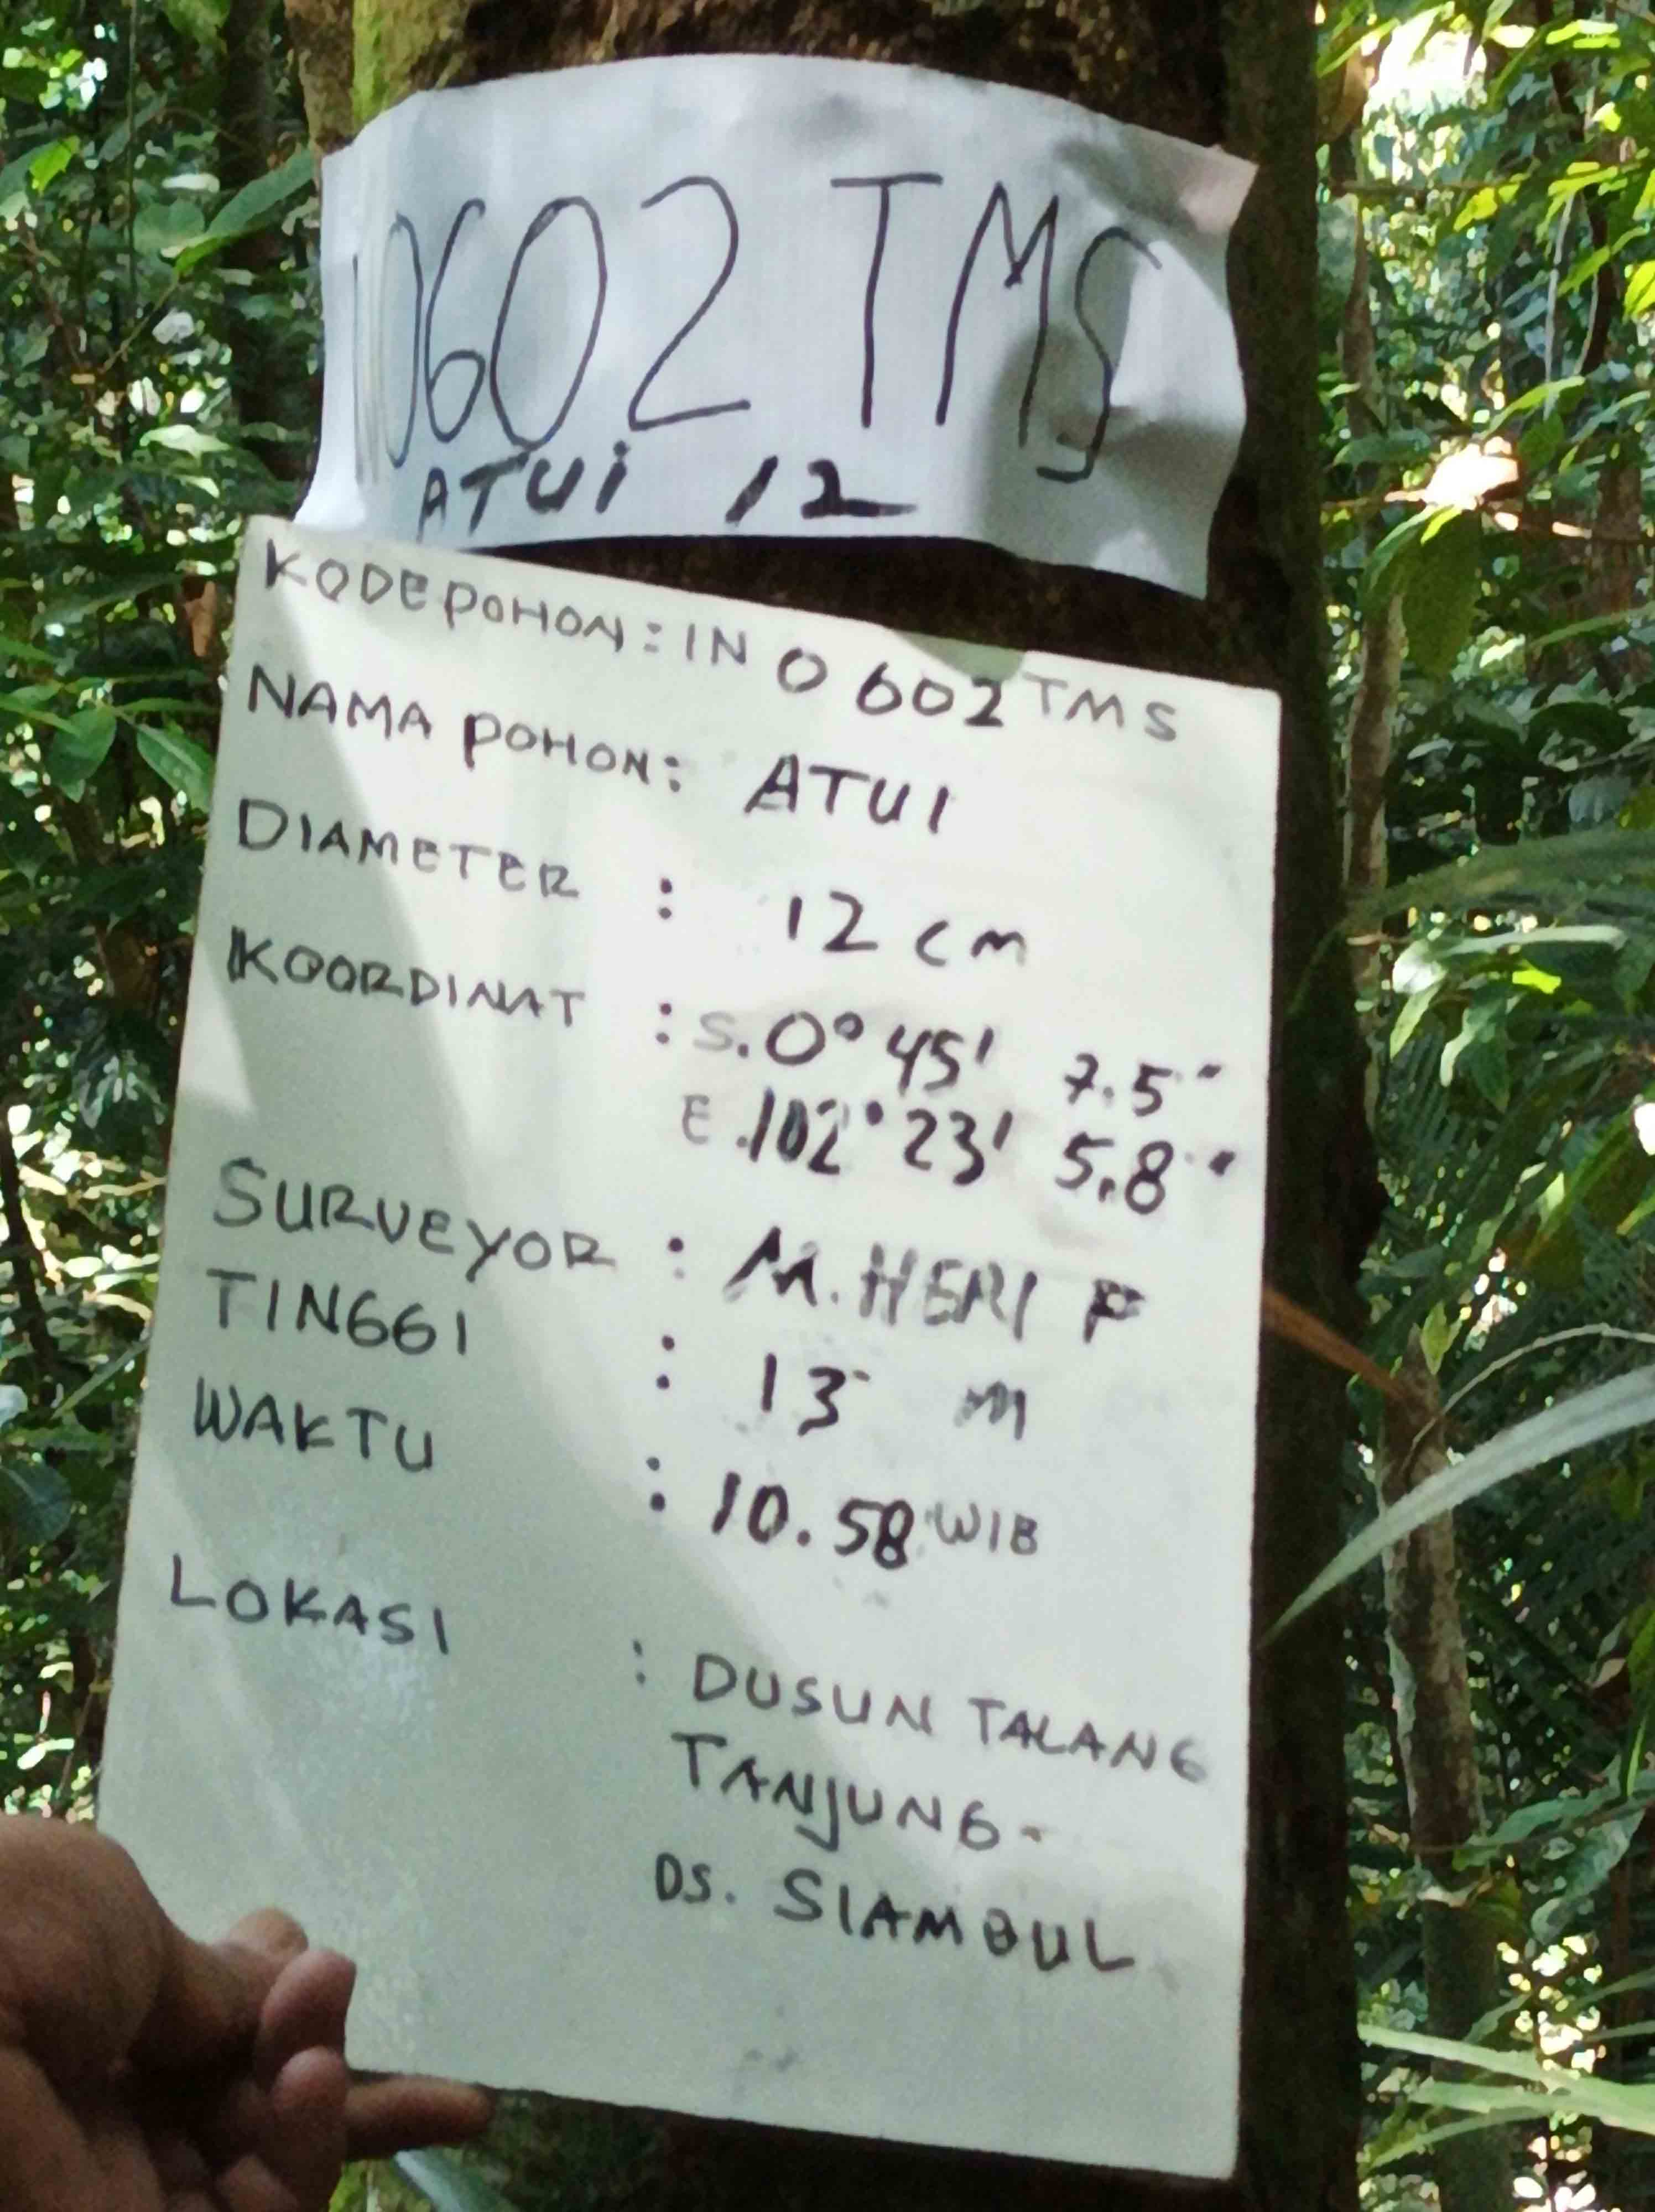 0602 TMS
ATUi 12
KODE POHON : IN 0602 TMS
NAMA POHON : ATUI
DIAMETER : 12 cm
KOORDINAT : S. 0° 45' 7.5"
E. 102° 23' 5.8"
SURVEYOR : M. HERI P
TINGGI : 13 m
WAKTU : 10.58 WIB
LOKASI : DUSUN TALANG
TANJUNG -
DS. SIAMBUL